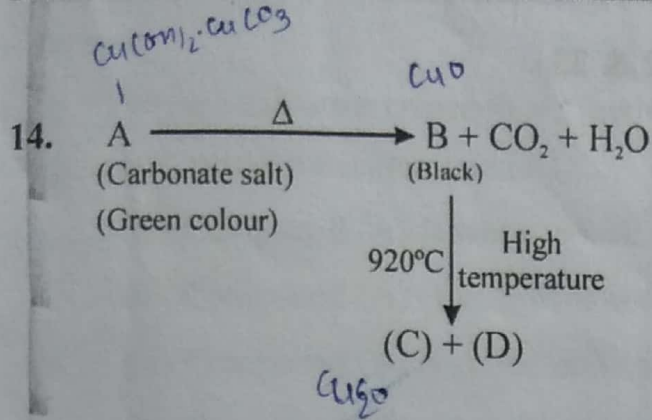 Cu(OH)₂·CuCO3
CuO
14. A Δ B + CO₂ + H₂O
(Carbonate salt) (Black)
(Green colour)
920ºC High
temperature
(C) + (D)
Cu₂O